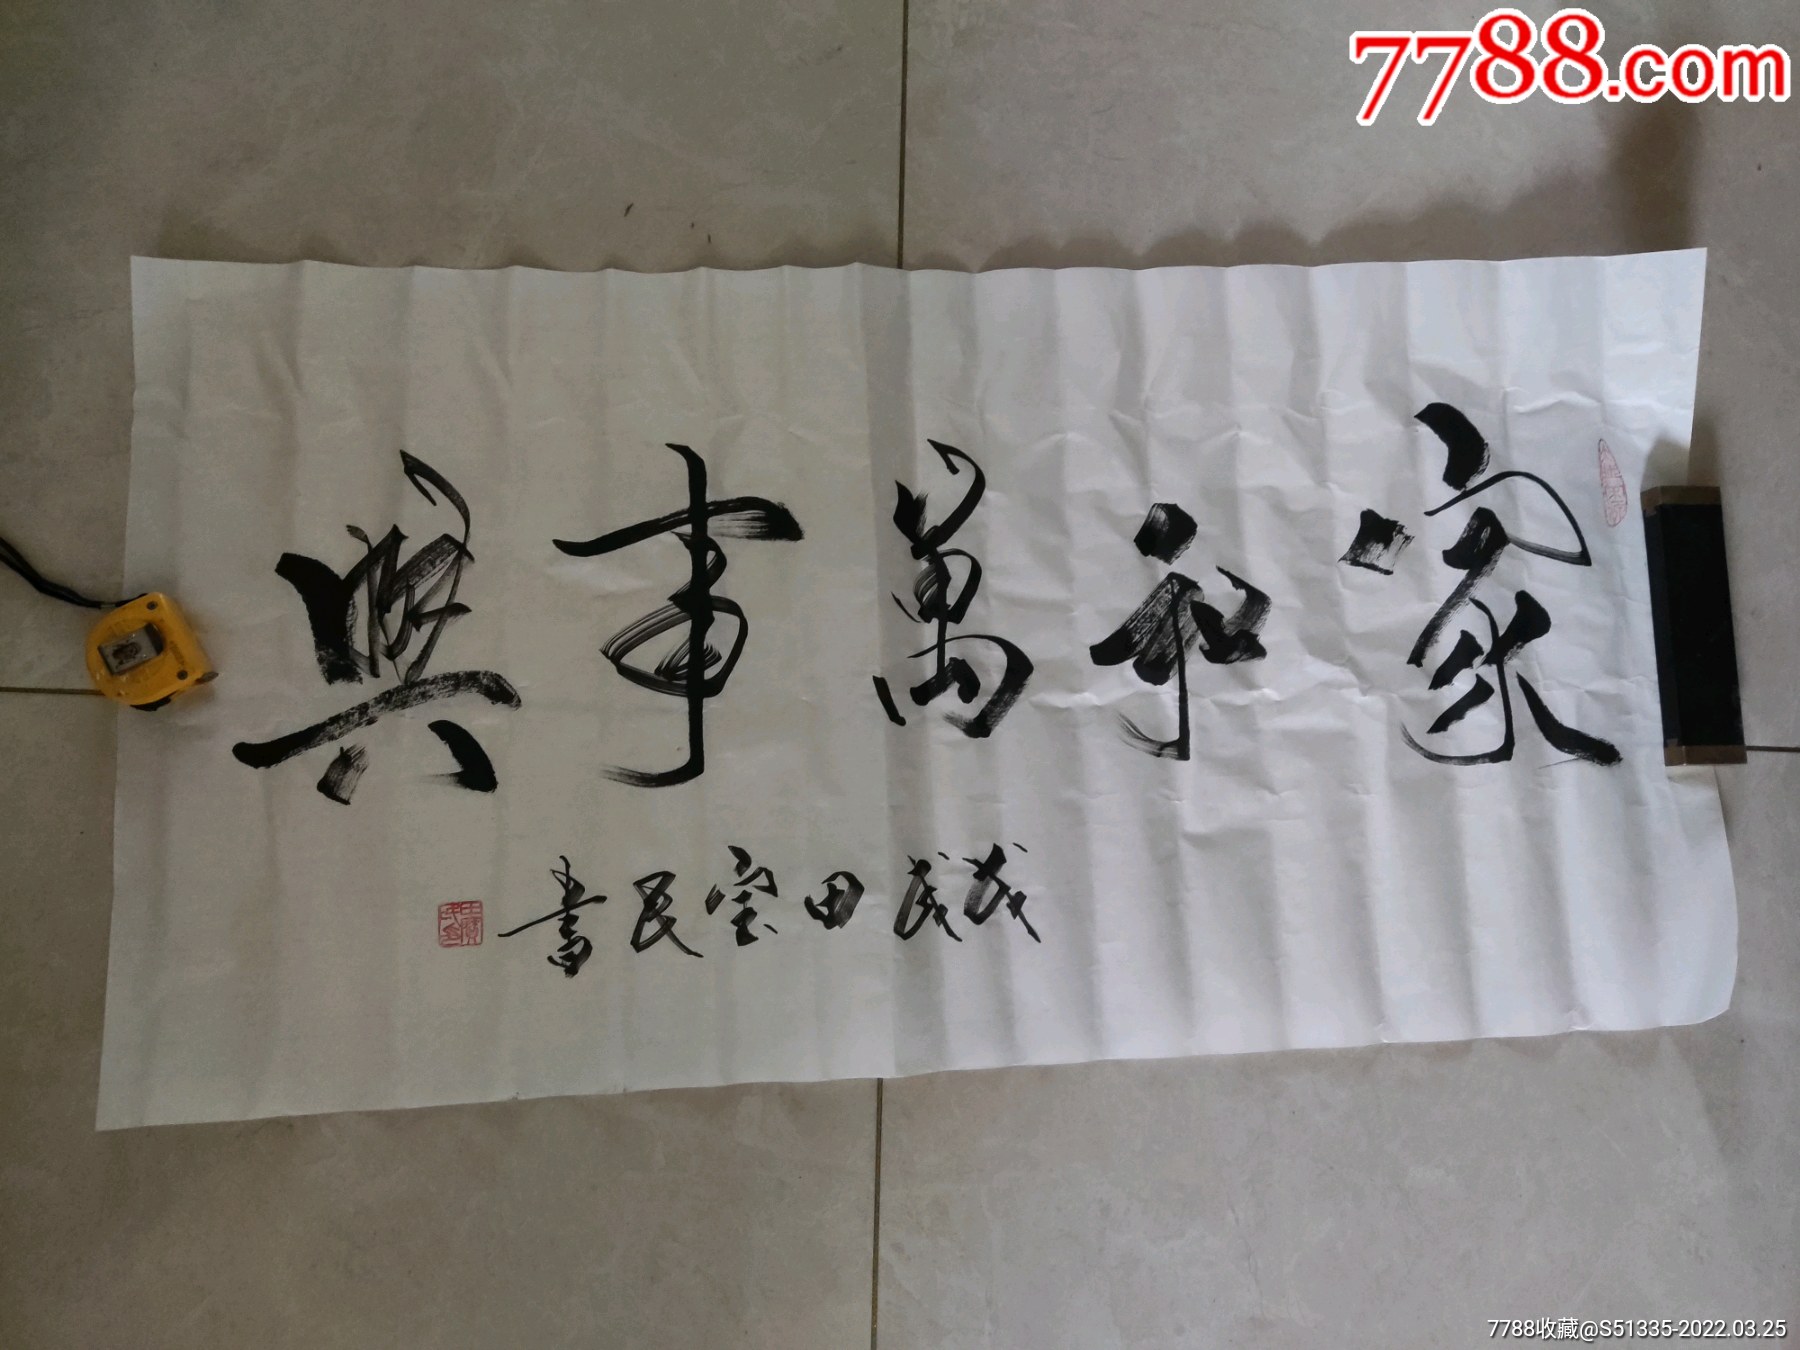 7788.com
家和萬事興
田宝民書
7788收藏@S51335-2022.03.25